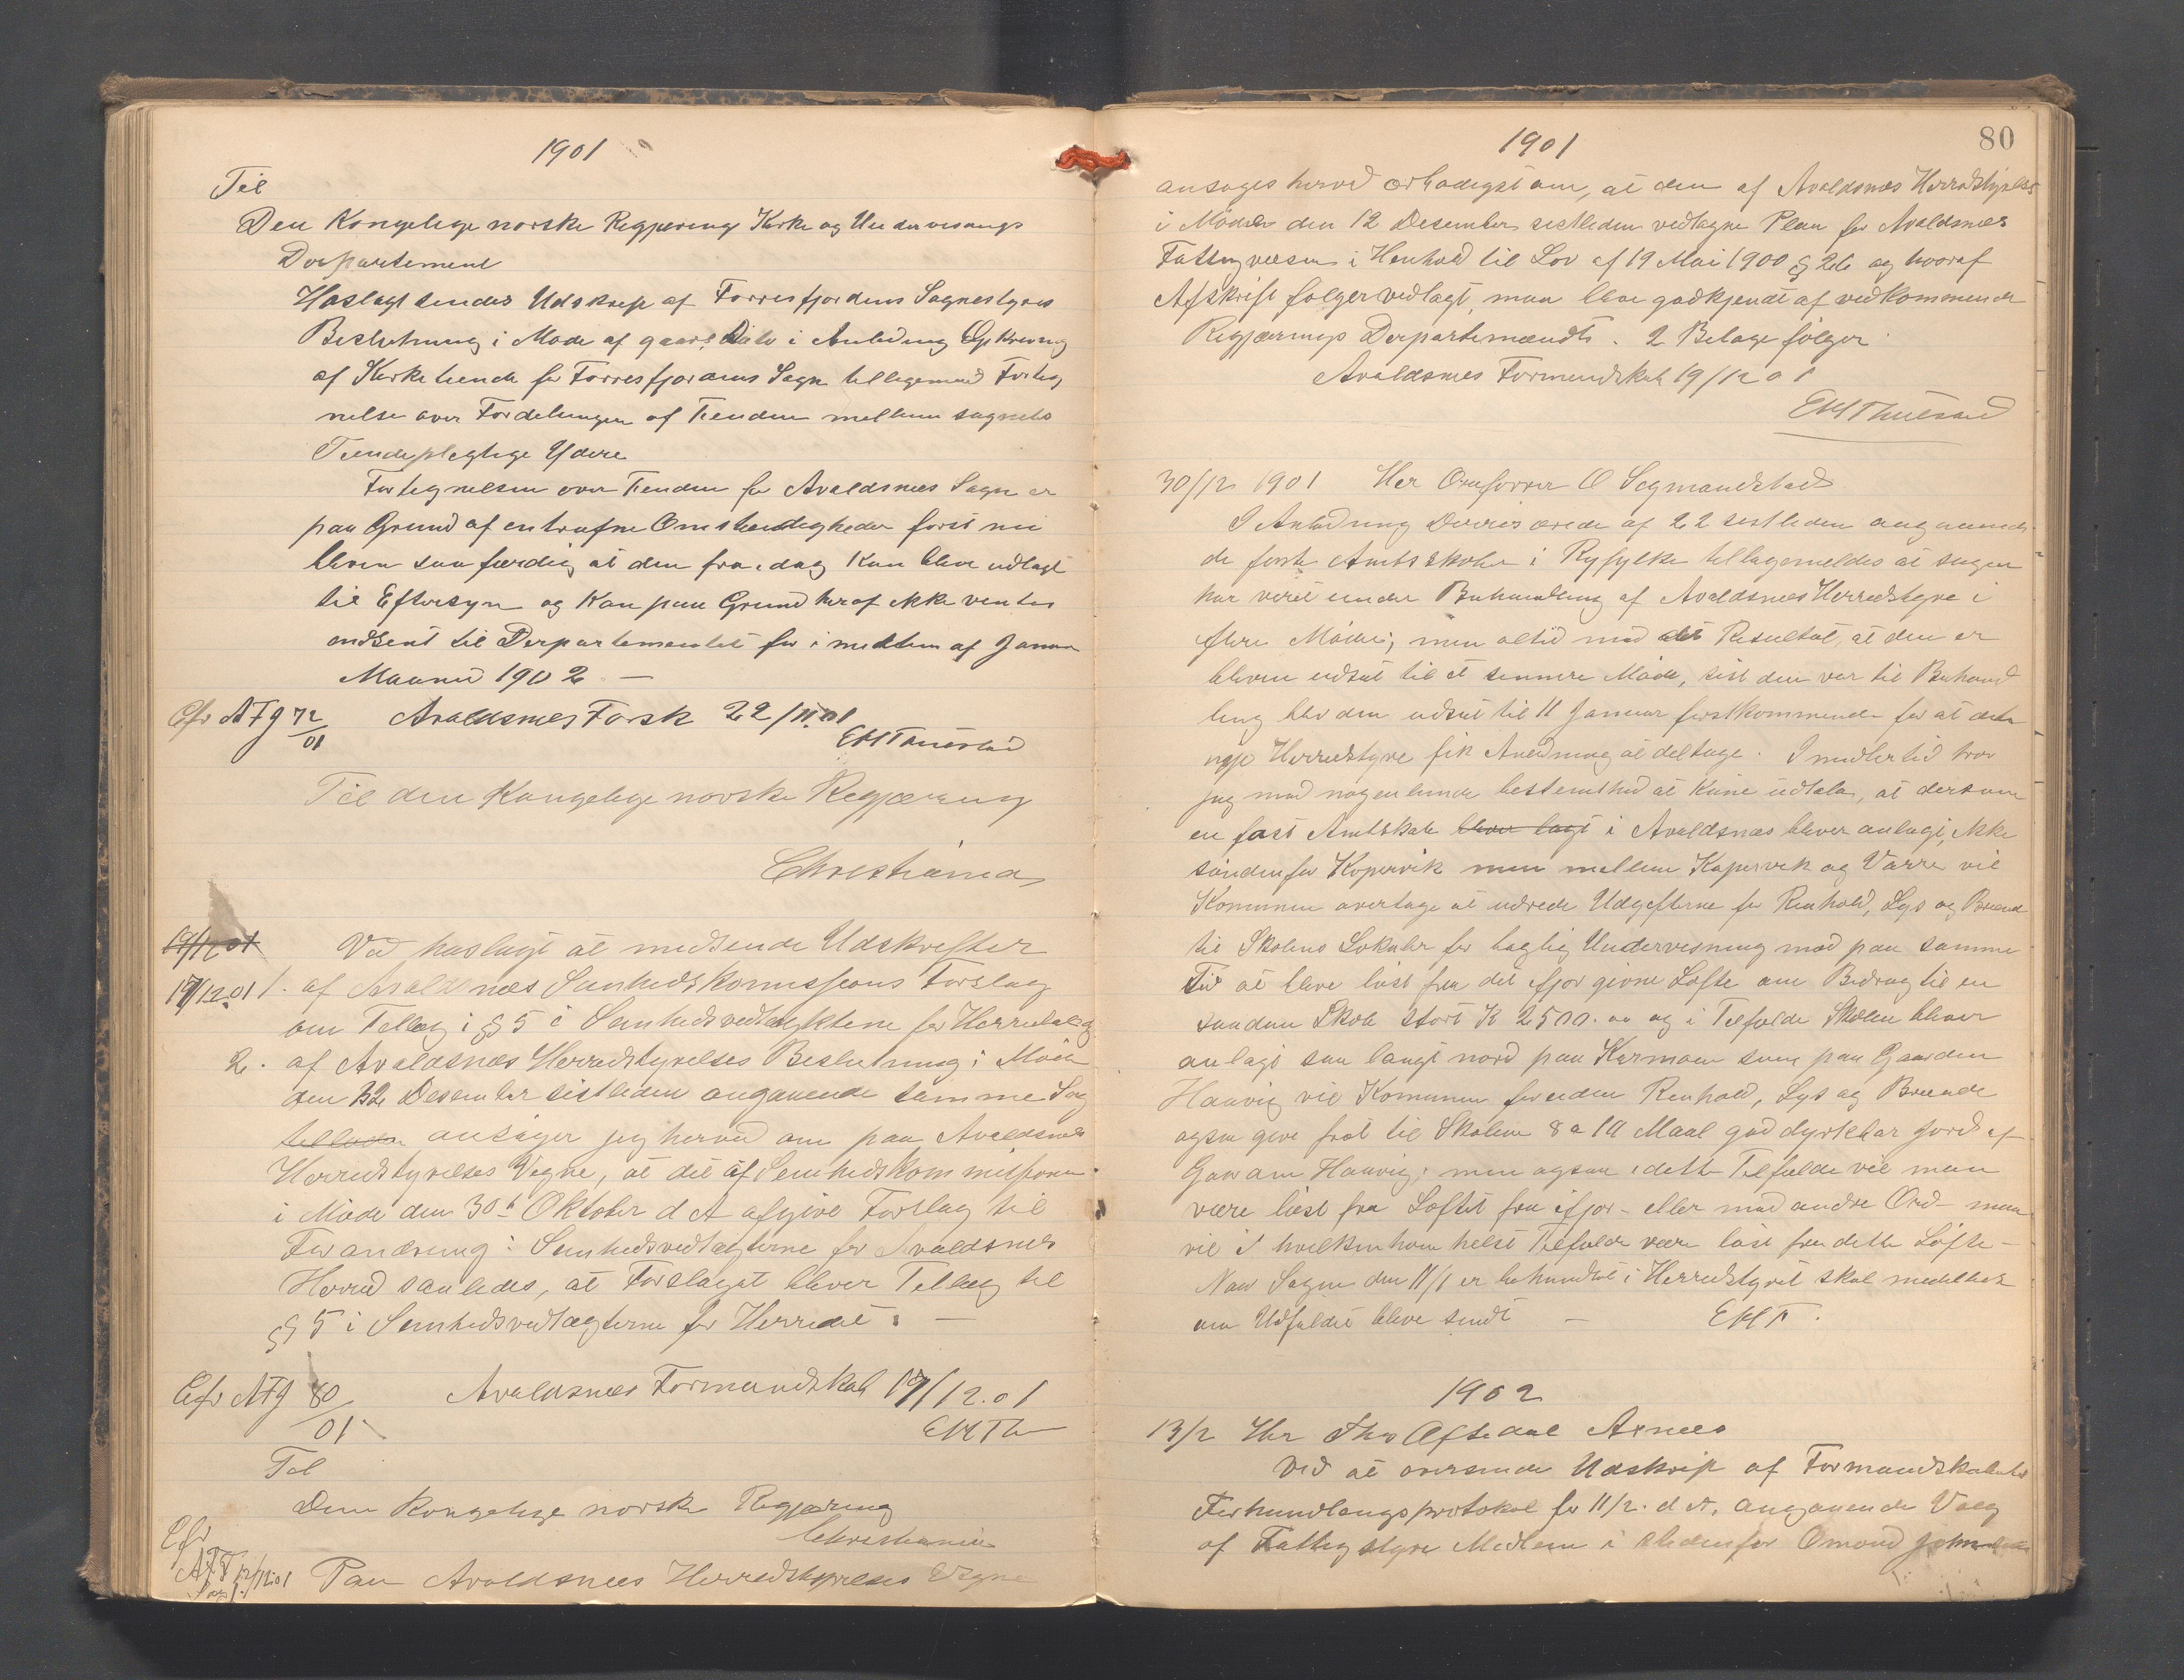 1901
Til
Den Kongelige norske Regjering Kirke og Undervisnings
Departement
Hoslagt sendes Udskrift af Førresfjordens Sognestyres
Beslutning i Møde af gaars Dato i Anledning Opkrevning
af Kirketiende for Førresfjordens Sogn tilligemed Forteg
nelse over Fordelingen af Tienden mellem sognets
Tiendepligtige Ydere
Fortegnelsen over Tienden for Avaldsnes Sogn er
paa Grund af entrufne Omstændigheder først nu
bleven saa færdig at den fra i dag kan blive udlagt
til Eftersyn og kan paa Grund heraf ikke ventes
indsent til Departementet før i midten af Januar
Maaned 1902. —
Cfr AFg 72/01 Avaldsnes Forsk 22/11 01
EM Thuestad
Til den Kongelige norske Regjæring
Christiania
19/12 01 Ved hoslagt at medsende Udskrifter
17/12.01 1. af Avaldsnes Sunhedskommissions Forslag
om Tillæg i § 5 i Sunhedsvedtægterne for Herredet og
2. af Avaldsnes Herredstyrelses Beslutning i Møde
den 12 Desember sistleden angaaende samme Sag
tillader ansøger jeg herved om paa Avaldsnes
Herredstyrelses Vegne, at det af Sunhedskommissionen
i Møde den 30te Oktober d A afgivne Forslag til
Forandring i Sunhedsvedtægterne for Avaldsnes
Herred saaledes, at Forslaget bliver Tillæg til
§ 5 i Sunhedsvedtægterne for Herredet. —
Cfr AFg 80/01 Avaldsnes Formandskab 17/12.01
EMTh
Til
Den Kongelige norske Regjæring
Christiania
Cfr
AFF 12/12.01
Paa Avaldsnes Herredstyrelses Vegne
80
1901
ansøges herved ærbødigst om, at den af Avaldsnes Herredstyrelse
i Møde den 12 Desember sistleden vedtagne Plan for Avaldsnes
Fattigvæsen i Henhold til Lov af 19 Mai 1900 § 2 og hvoraf
Afskrift følger vedlagt, maa blive godkjendt af vedkommende
Regjærings Departemendt. 2 Belage følger
Avaldsnes Formendskab 19/12 01
EM Thuestad
30/12 1901 Her Ordfører O Segmandstad
I Anledning Deres ærede af 22 sistleden angaaende
de faste Amtsskoler i Ryfylke tillagemeldes at sagen
har veret under Behandling af Avaldsnes Herredstyre i
flere Møder, men altid med det Resultat, at den er
bleven udsat til et sennere Møde, sist den var til Behand
ling blev den udsat til 11 Januar førstkommende for at dette
nye Herredstyre fik Anledning at deltage. Imidlertid tror
jeg med nogenlunde bestemthed at kune udtale, at dersom
en fast Amtskole bliver lagt i Avaldsnes bliver anlagt, ikke
søndenfor Kopervik men mellem Kopervik og Vørre vil
Komunen overtage at udrede Udgifterne for Renhold, Lys og Brænde
til Skolens Lokaler for daglig Undervisning mod paa samme
Tid at blive løst fra det ifjor givne Løfte om Bidrag til en
saadan Skole stort K 2500.00 og i Tilfælde Skolen bliver
anlagt saa langt nord paa Karmøen som paa Gaarden
Haavig vil Komunen foruden Renhold, Lys og Brænde
ogsaa give frit til Skolen 8 a 10 Maal god dyrkbar Jord af
Gaarden Haavig; men ogsaa i dette Tilfælde vil man
være løst fra Løftet fra ifjor - eller med andre Ord - man
vil i hvilkensomhelst Tilfælde være løst fra dette Løfte —
Naar Sagen den 11/1 er behandlet i Herredstyret skal meddelelse
om Udfaldet blive sendt — EMT.
1902
13/2 Her Thos Aftedal Arnes
Ved at oversende Udskrift af Formandskabets
Forhandlingsprotokol for 11/2. d A. angaaende Valg
af Fattigstyre Medlem i stedenfor Omund